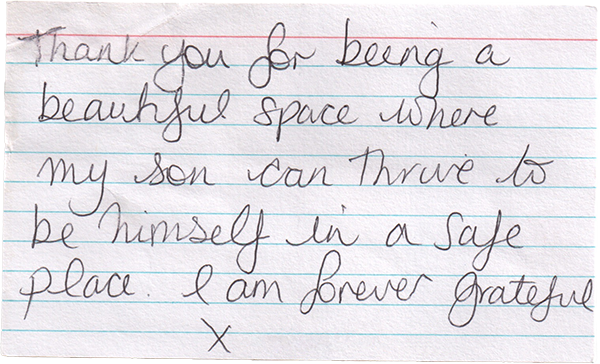 Thank you for being a
beautiful space where
my son can thrive to
be himself in a safe
place. I am forever grateful
X